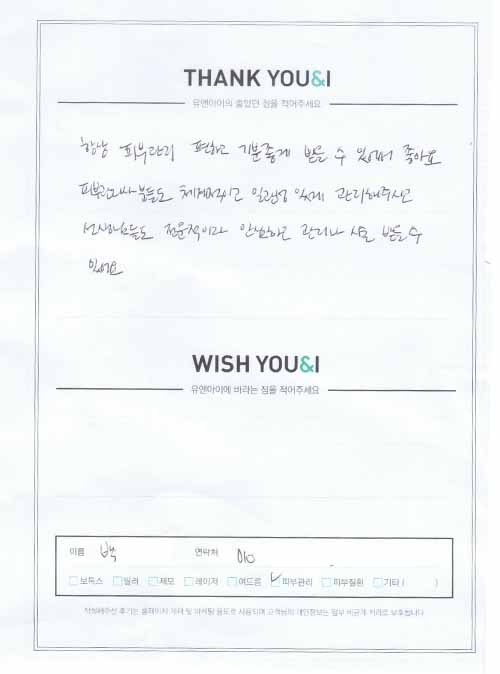 THANK YOU&I
유앤아이의 좋았던 점을 적어주세요
항상 피부관리 편하고 기분좋게 받을 수 있어서 좋아요
피부관리사분들도 체계적이고 일관성 있게 관리해주시고
선생님들도 전문적이라 안심하고 관리나 시술 받을 수
있어요
WISH YOU&I
유앤아이에 바라는 점을 적어주세요
이름 백 연락처 010
보톡스 필러 제모 레이저 여드름 피부관리 피부질환 기타 ( )
작성해주신 후기는 홈페이지 게재 및 마케팅 용도로 사용되며 고객님의 개인정보는 일부 비공개 처리로 보호됩니다